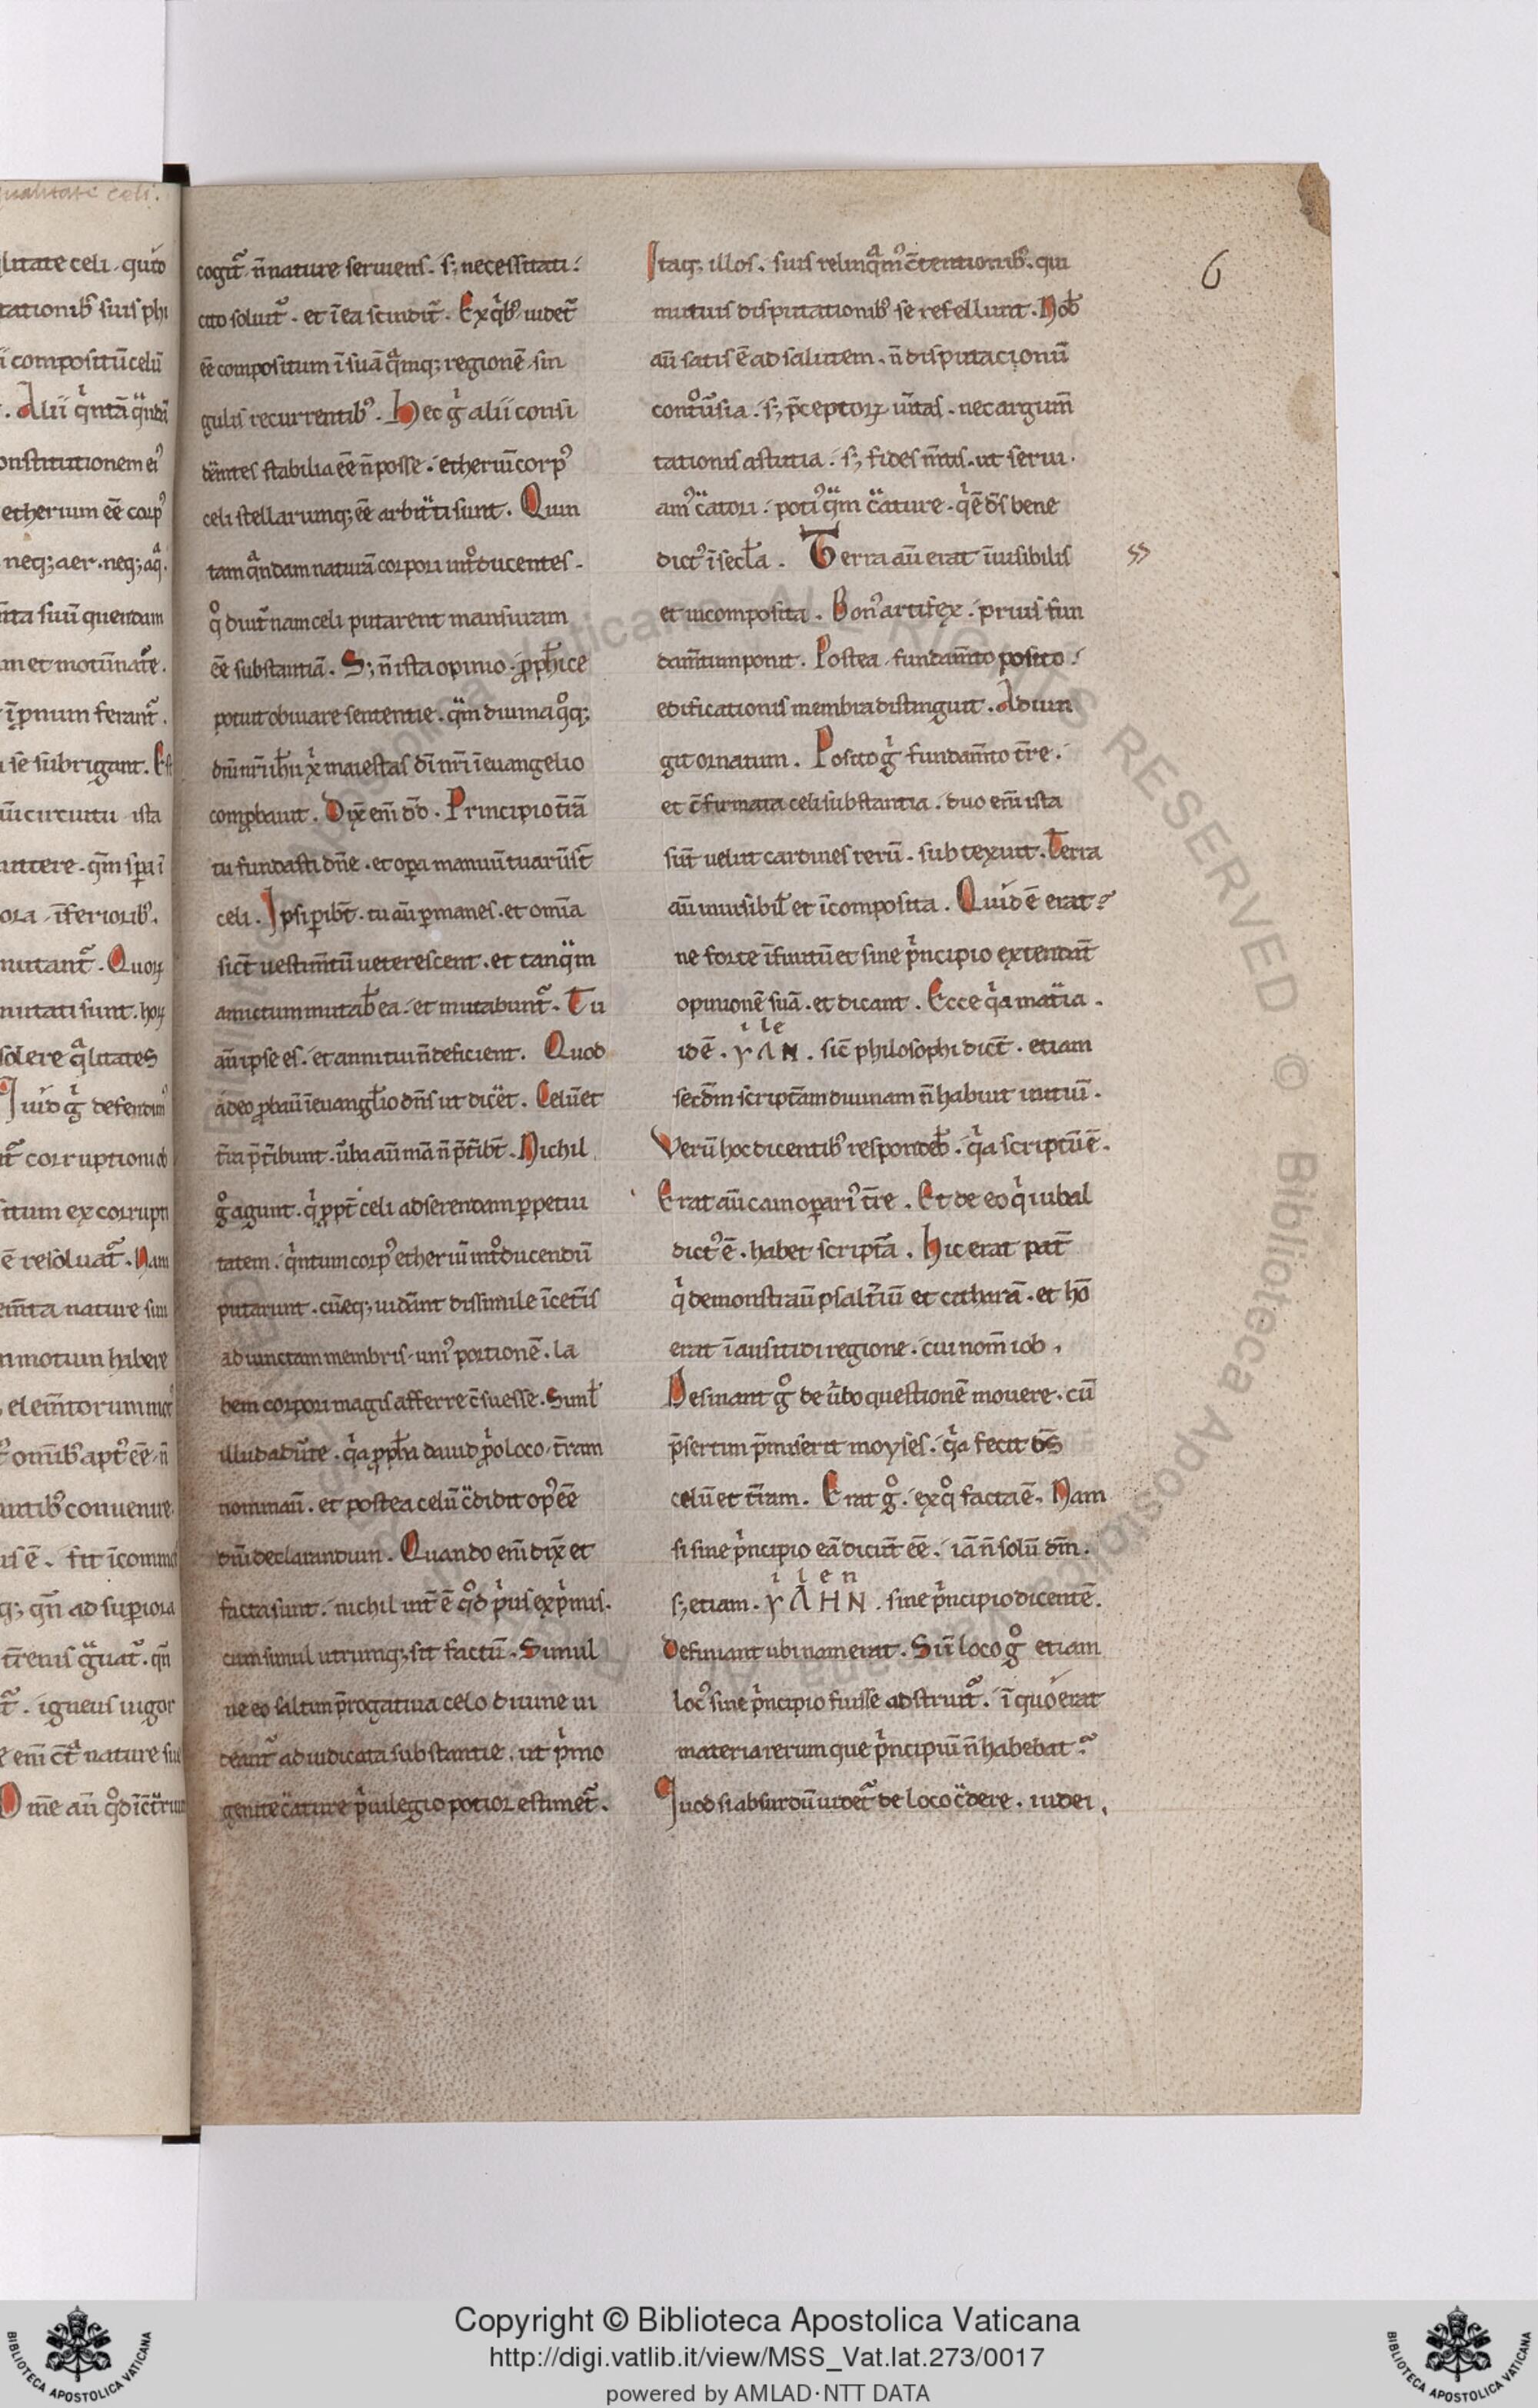 qualitate celi.
litate celi. quito
tationibꝰ suis phi
i compositū celū
. Alii qͥntā qͣndā
onstitutionem eiꝰ
etherium eē corpꝰ
neq; aer. neq; aqͣ.
quendam
ferant᷑.
se subrigant. Est
circuitu ista
inferioribꝰ.
mutant᷑. Quoꝝ
mutati sunt. hoꝝ
solere qͣlitates
Quid gͥ defendim᷒
corruptioni ob
itum ex corrupti
ē resoluat᷑. Nam
nature sim
motum habere
elem̄torum mot᷒
om̄ibꝰ aptꝰ eē. n̄
conuenire
ad supiora
igneus uigor
cogit᷑. n̄ nature seruiens. s; necessitati.
cito soluit᷑. et ī ea scindit᷑. Ex qͥbꝰ uidet᷑
eē compositum ī suā qͣmq; regionē sin
gulis recurrentibꝰ. Hec gͥ alii consi
dāntes stabilia eē n̄ posse. etheriū corpꝰ
celi stellarumq; eē arbitͣti sunt. Quin
tam qͣndam naturā corpori intͦducentes.
qͦ diut̄nam celi putarent mansuram
eē substantiā. S; n̄ ista opinio. ꝓpħice
potuit obuiare sententie. qͣm diuina qͦq;
dn̄i nr̄i ihu xͥ maiestas dī nr̄i ī euangelio
comꝓbauit. Dix̄ em̄ dd̄. Principio t̄rā
tu fundasti dn̄e. et oꝑa manuū tuarū st̄
celi. Ipsi ꝑibt̄. tu aū ꝑmanes. et om̄ia
sict̄ uestim̄tū ueterescent. et tanqͣm
amictum mutab̄ ea. et mutabunt᷑. Tu
aū ipse es. et anni tui n̄ deficient. Quod
adeo ꝓbauī ī euangl̄io dn̄s ut dicͣet. Celū et
t̄ra p̄t̄ibunt. ūba aū mā n̄ p̄t̄ibt̄. Nichil
gͦ agunt. qͥ ꝓpt̄ celi adserendam ꝑpetui
tatem. qͥntum corpꝰ etheriū intͦducendū
putarunt. cū eq; uidānt dissimile ī cet̄is
adiunctam membris. uniꝰ portionē. la
bem corpori magis afferre c̄suesse. Siml̄
illud aduūte. qͥa ꝓpħa dauid pͥo loco t̄ram
nominauī. et postea celū cͣdidit opꝰ eē
dn̄i declarandum. Quando em̄ dix̄ et
facta sunt. nichil int̄ ē qͦd pͥus expͥmis.
cum simul utrumq; sit factū. Simul
ne eo saltim p̄rogatiua celo diuine ui
deant᷑ adiudicata substantie. ut pͥmo
genite cͣature pͥuilegio potior estimet᷑.
6
Itaq; illos. suis relinqͣmꝰ c̄tentionibꝰ. qui
mutuis disputationibꝰ se refellunt. Nob̄
aū satis ē ad salutem. n̄ disputacionū
contͦūsia. s; p̄ceptoꝝ ūitas. nec argum̄
tationis astutia. s; fides m̄tis. ut serui.
amꝰ cͣatori. potiꝰ qͣm cͣature. qͥ ē dš bene
dictꝰ ī secl̄a. Terra aū erat īuisibilis
ss
et incomposita. Bonꝰ artifex. prius fun
dam̄tum ponit. Postea fundam̄to posito.
edificationis membra distinguit. Adiun
git ornatum. Posito gͥ fundam̄to t̄re.
et c̄firmata celi substantia. duo em̄ ista
sūt uelut cardines rerū. subtexuit. Terra
aū inuisibil̄ et īcomposita. Quid ē erat?
ne forte īfinitū et sine pͥncipio extendat̄
opinionē suā. et dicant. Ecce qͥa matͣia.
i le
idē. ΥΛΝ. sic̄ philosophi dict̄. etiam
secd̄m scriptͣam diuinam n̄ habuit initiū.
Verū hoc dicentibꝰ respondeb̄. qͥa scriptū ē.
Erat aū cain oꝑariꝰ t̄re. Et de eo qͥ iubal
dictꝰ ē. habet scriptͣa. Hic erat pat̄
qͥ demonstrauī psalt̄iū et citharā. et hō
erat ī ausitidi regione. cui nom̄ iob.
Desinant gͦ de ūbo questionē mouere. cū
p̄sertim p̄miserit moyses. qͥa fecit dš
celū et t̄ram. Erat gͦ. ex qͦ facta ē. Nam
si sine pͥncipio eā dicūt eē. iā n̄ solū dm̄.
i l e n
s; etiam. ΥΛΗΝ. sine pͥncipio dicentē.
Definiant ubinam erat. Sī ī loco gͦ etiam
locꝰ sine pͥncipio fuisse adstruit᷑. ī quo erat
materia rerum que pͥncipiū n̄ habebat?
Quod si absurdū uidet᷑ de loco cͣdere. uidei.
Biblioteca Apostolica Vaticana ALL RIGHTS RESERVED © Biblioteca Apostolica Vaticana
Copyright © Biblioteca Apostolica Vaticana
http://digi.vatlib.it/view/MSS_Vat.lat.273/0017
powered by AMLAD·NTT DATA
BIBLIOTECA APOSTOLICA VATICANA
BIBLIOTECA APOSTOLICA VATICANA